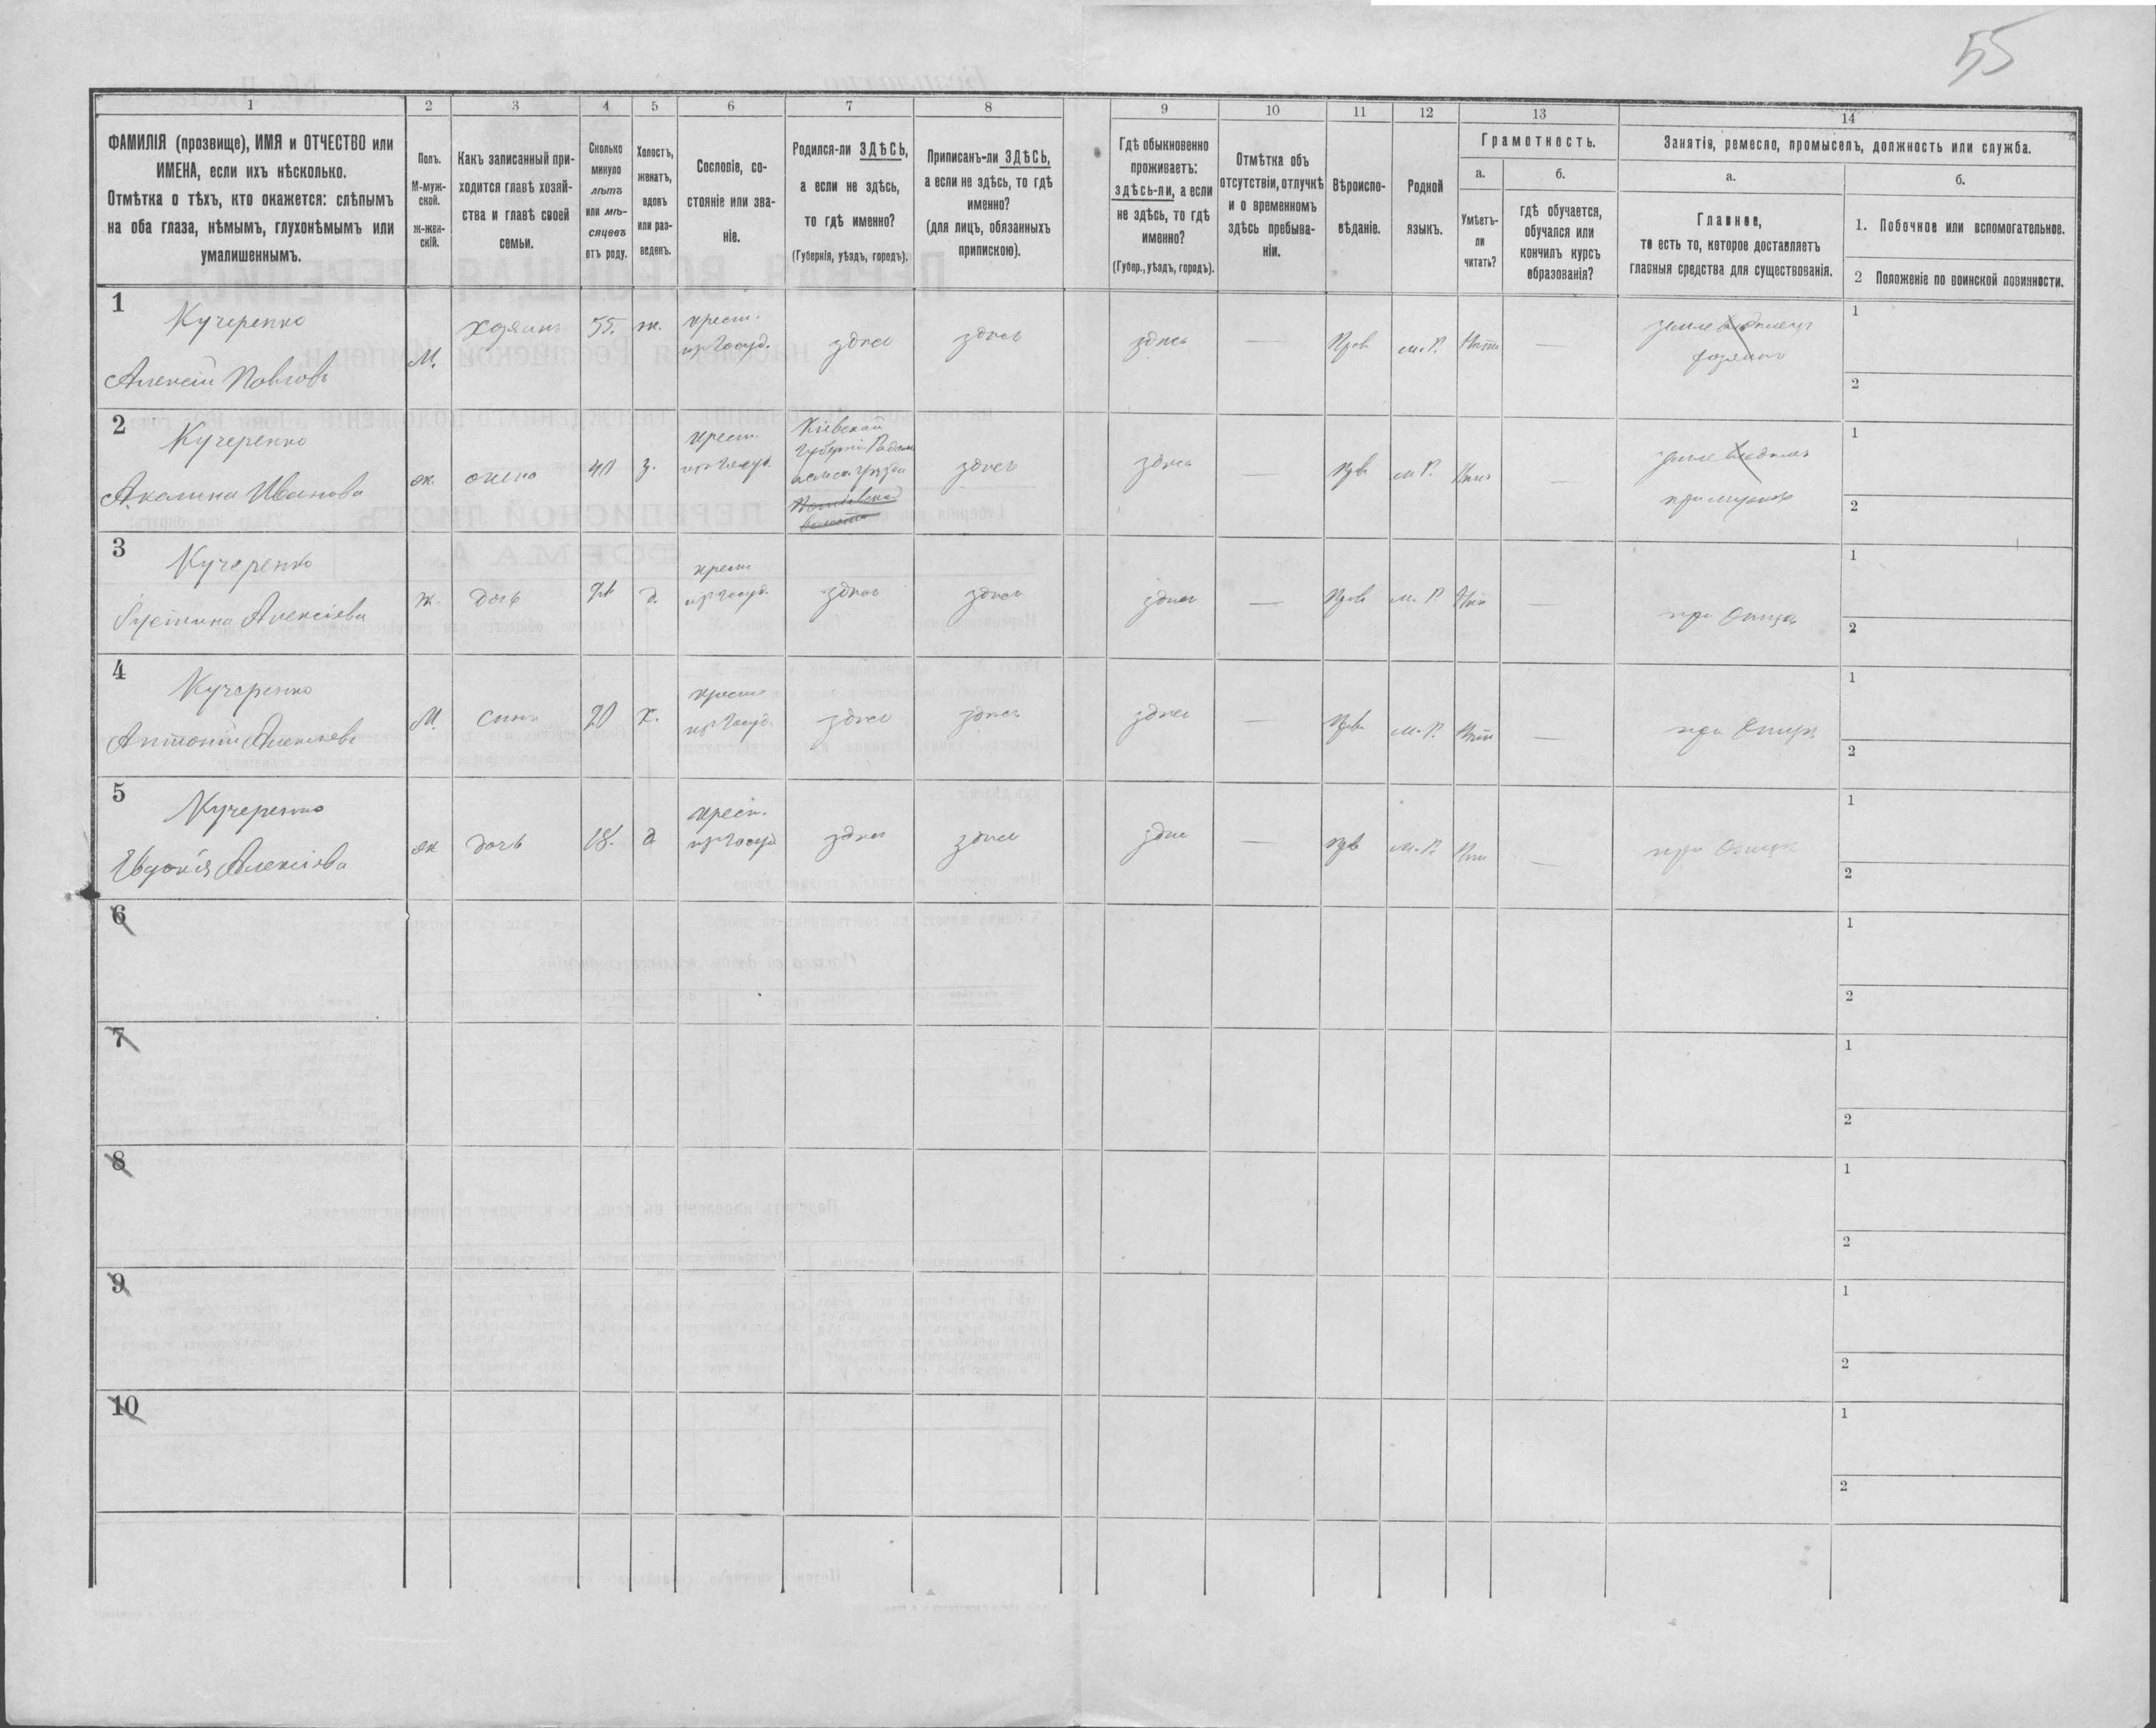 55
1 2 3 4 5 6 7 8 9 10 11 12 13 14
ФАМИЛІЯ (прозвище), ИМЯ и ОТЧЕСТВО или
ИМЕНА, если ихъ нѣсколько.
Отмѣтка о тѣхъ, кто окажется: слѣпымъ
на оба глаза, нѣмымъ, глухонѣмымъ или
умалишеннымъ.
Полъ.
М-муж-
ской.
ж-жен-
скій.
Какъ записанный при-
ходится главѣ хозяй-
ства и главѣ своей
семьи.
Сколько
минуло
лѣтъ
или мѣ-
сяцевъ
отъ роду.
Холостъ,
женатъ,
вдовъ
или раз-
веденъ.
Сословіе, со-
стояніе или зва-
ніе.
Родился-ли ЗДѢСЬ,
а если не здѣсь,
то гдѣ именно?
(Губернія, уѣздъ, городъ).
Приписанъ-ли ЗДѢСЬ,
а если не здѣсь, то гдѣ
именно?
(для лицъ, обязанныхъ
припискою).
Гдѣ обыкновенно
проживаетъ:
здѣсь-ли, а если
не здѣсь, то гдѣ
именно?
(Губер., уѣздъ, городъ).
Отмѣтка объ
отсутствіи, отлучкѣ
и о временномъ
здѣсь пребыва-
ніи.
Вѣроиспо-
вѣданіе.
Родной
языкъ.
Грамотность.
а.
Умѣетъ-
ли
читать?
б.
гдѣ обучается,
обучался или
кончилъ курсъ
образованія?
Занятія, ремесло, промыселъ, должность или служба.
а.
Главное,
то есть то, которое доставляетъ
главныя средства для существованія.
б.
1. Побочное или вспомогательное.
2 Положеніе по воинской повинности.
1
Кучеренко
Алексій Павловъ
М.
хозяинъ
55.
ж.
крест.
из госуд.
здесь
здесь
здесь
—
Прав.
м. Р.
Нѣтъ
—
хозяинъ
1
2
2
Кучеренко
Акелина Иванова
ж.
жена
40
з.
крест.
из госуд.
Кіевской
губерніи
уѣзда
здесь
здесь
—
Прав
м Р.
—
при мужѣ
1
2
3
Кучеренко
Алексіева
ж.
дочь
д.
крест
из госуд.
здесь
здесь
здесь
—
Прав
м. Р.
—
при Отцѣ
1
2
4
Кучеренко
Антоній Алексіевъ
М.
сынъ
20
х.
крест
из госуд.
здесь
здесь
здесь
—
Прав
м. Р.
Нѣтъ
—
при Отцѣ
1
2
5
Кучеренко
Евдокія Алексіева
ж
дочь
18.
д
крест.
из госуд
здесь
здесь
здесь
—
Прав
м. Р.
—
при Отцѣ
1
2
6
1
2
7
1
2
8
1
2
9
1
2
10
1
2